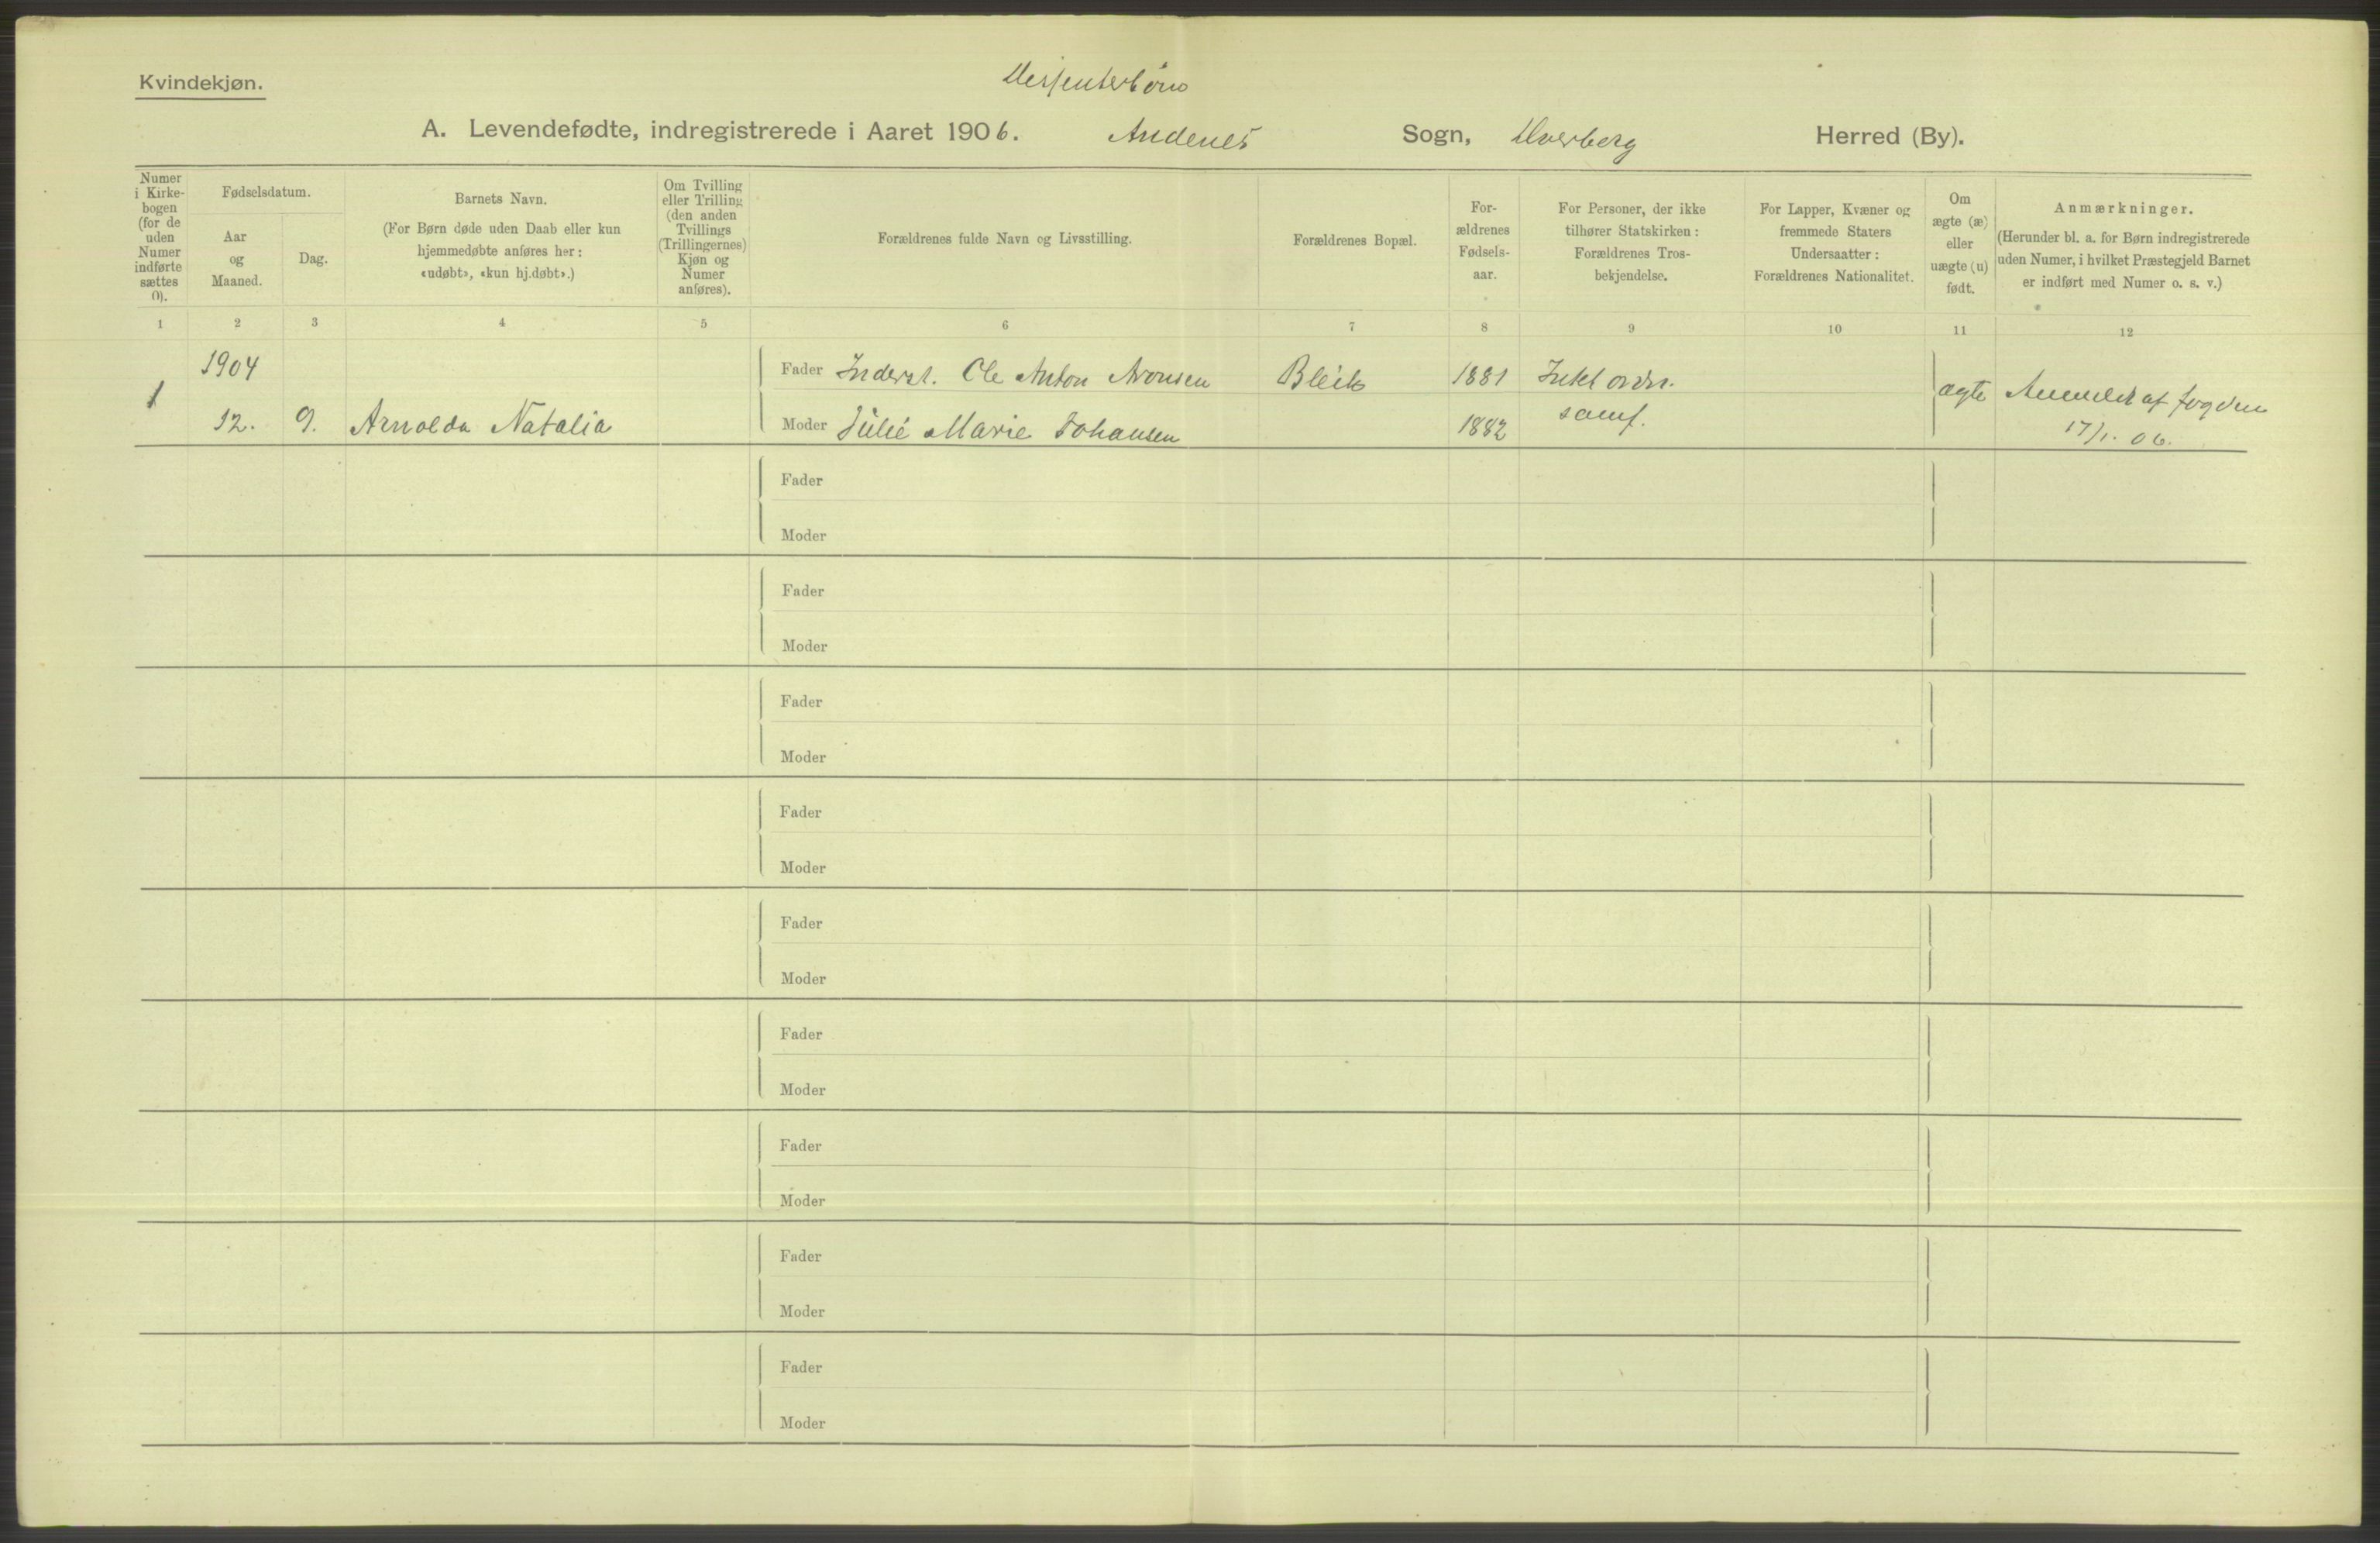 Kvindekjøn.
Dissenterbørn
A. Levendefødte, indregistrerede i Aaret 1906. Andenes Sogn, Dverberg Herred (By).
Numer
i Kirke-
bogen
(for de
uden
Numer
indførte
sættes
0).
Fødselsdatum.
Aar
og
Maaned.
Dag.
Barnets Navn.
(For Børn døde uden Daab eller kun
hjemmedøbte anføres her:
«udøbt», «kun hj.døbt».)
Om Tvilling
eller Trilling
(den anden
Tvillings
(Trillingernes)
Kjøn og
Numer
anføres).
Forældrenes fulde Navn og Livsstilling.
Forældrenes Bopæl.
For-
ældrenes
Fødsels-
aar.
For Personer, der ikke
tilhører Statskirken:
Forældrenes Tros-
bekjendelse.
For Lapper, Kvæner og
fremmede Staters
Undersaatter:
Forældrenes Nationalitet.
Om
ægte (æ)
eller
uægte (u)
født.
Anmærkninger.
(Herunder bl. a. for Børn indregistrerede
uden Numer, i hvilket Præstegjeld Barnet
er indført med Numer o. s. v.)
1 2 3 4 5 6 7 8 9 10 11 12
1904 Fader Inderst. Ole Anton Aronsen Bleik 1881
1 ægte af fogden
12. 9. Arnolda Natalia Moder Julie Marie Johansen 1882 samf. 17/1. 06.
Fader
Moder
Fader
Moder
Fader
Moder
Fader
Moder
Fader
Moder
Fader
Moder
Fader
Moder
Fader
Moder
Fader
Moder